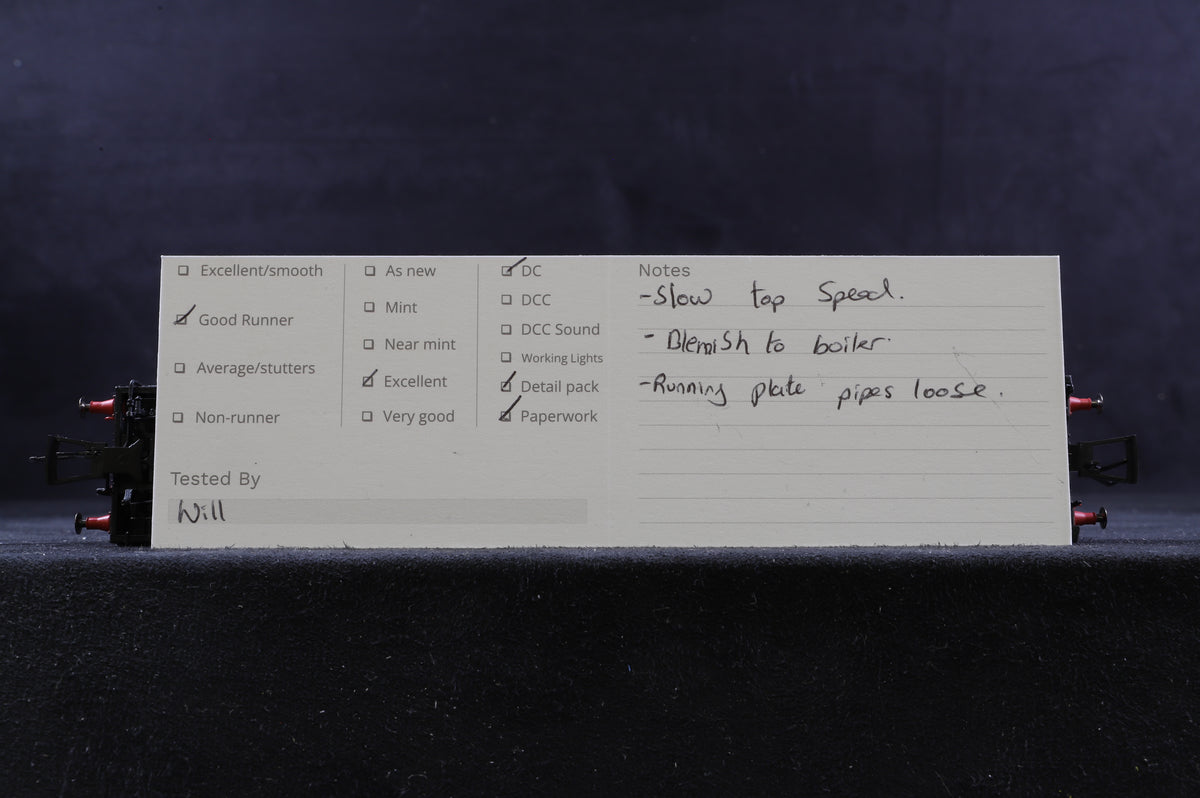 Excellent/smooth
Good Runner
Average/stutters
Non-runner
As new
Mint
Near mint
Excellent
Very good
DC
DCC
DCC Sound
Working Lights
Detail pack
Paperwork
Tested By
Will
Notes
-Slow top Speed.
- Blemish to boiler.
-Running plate pipes loose.